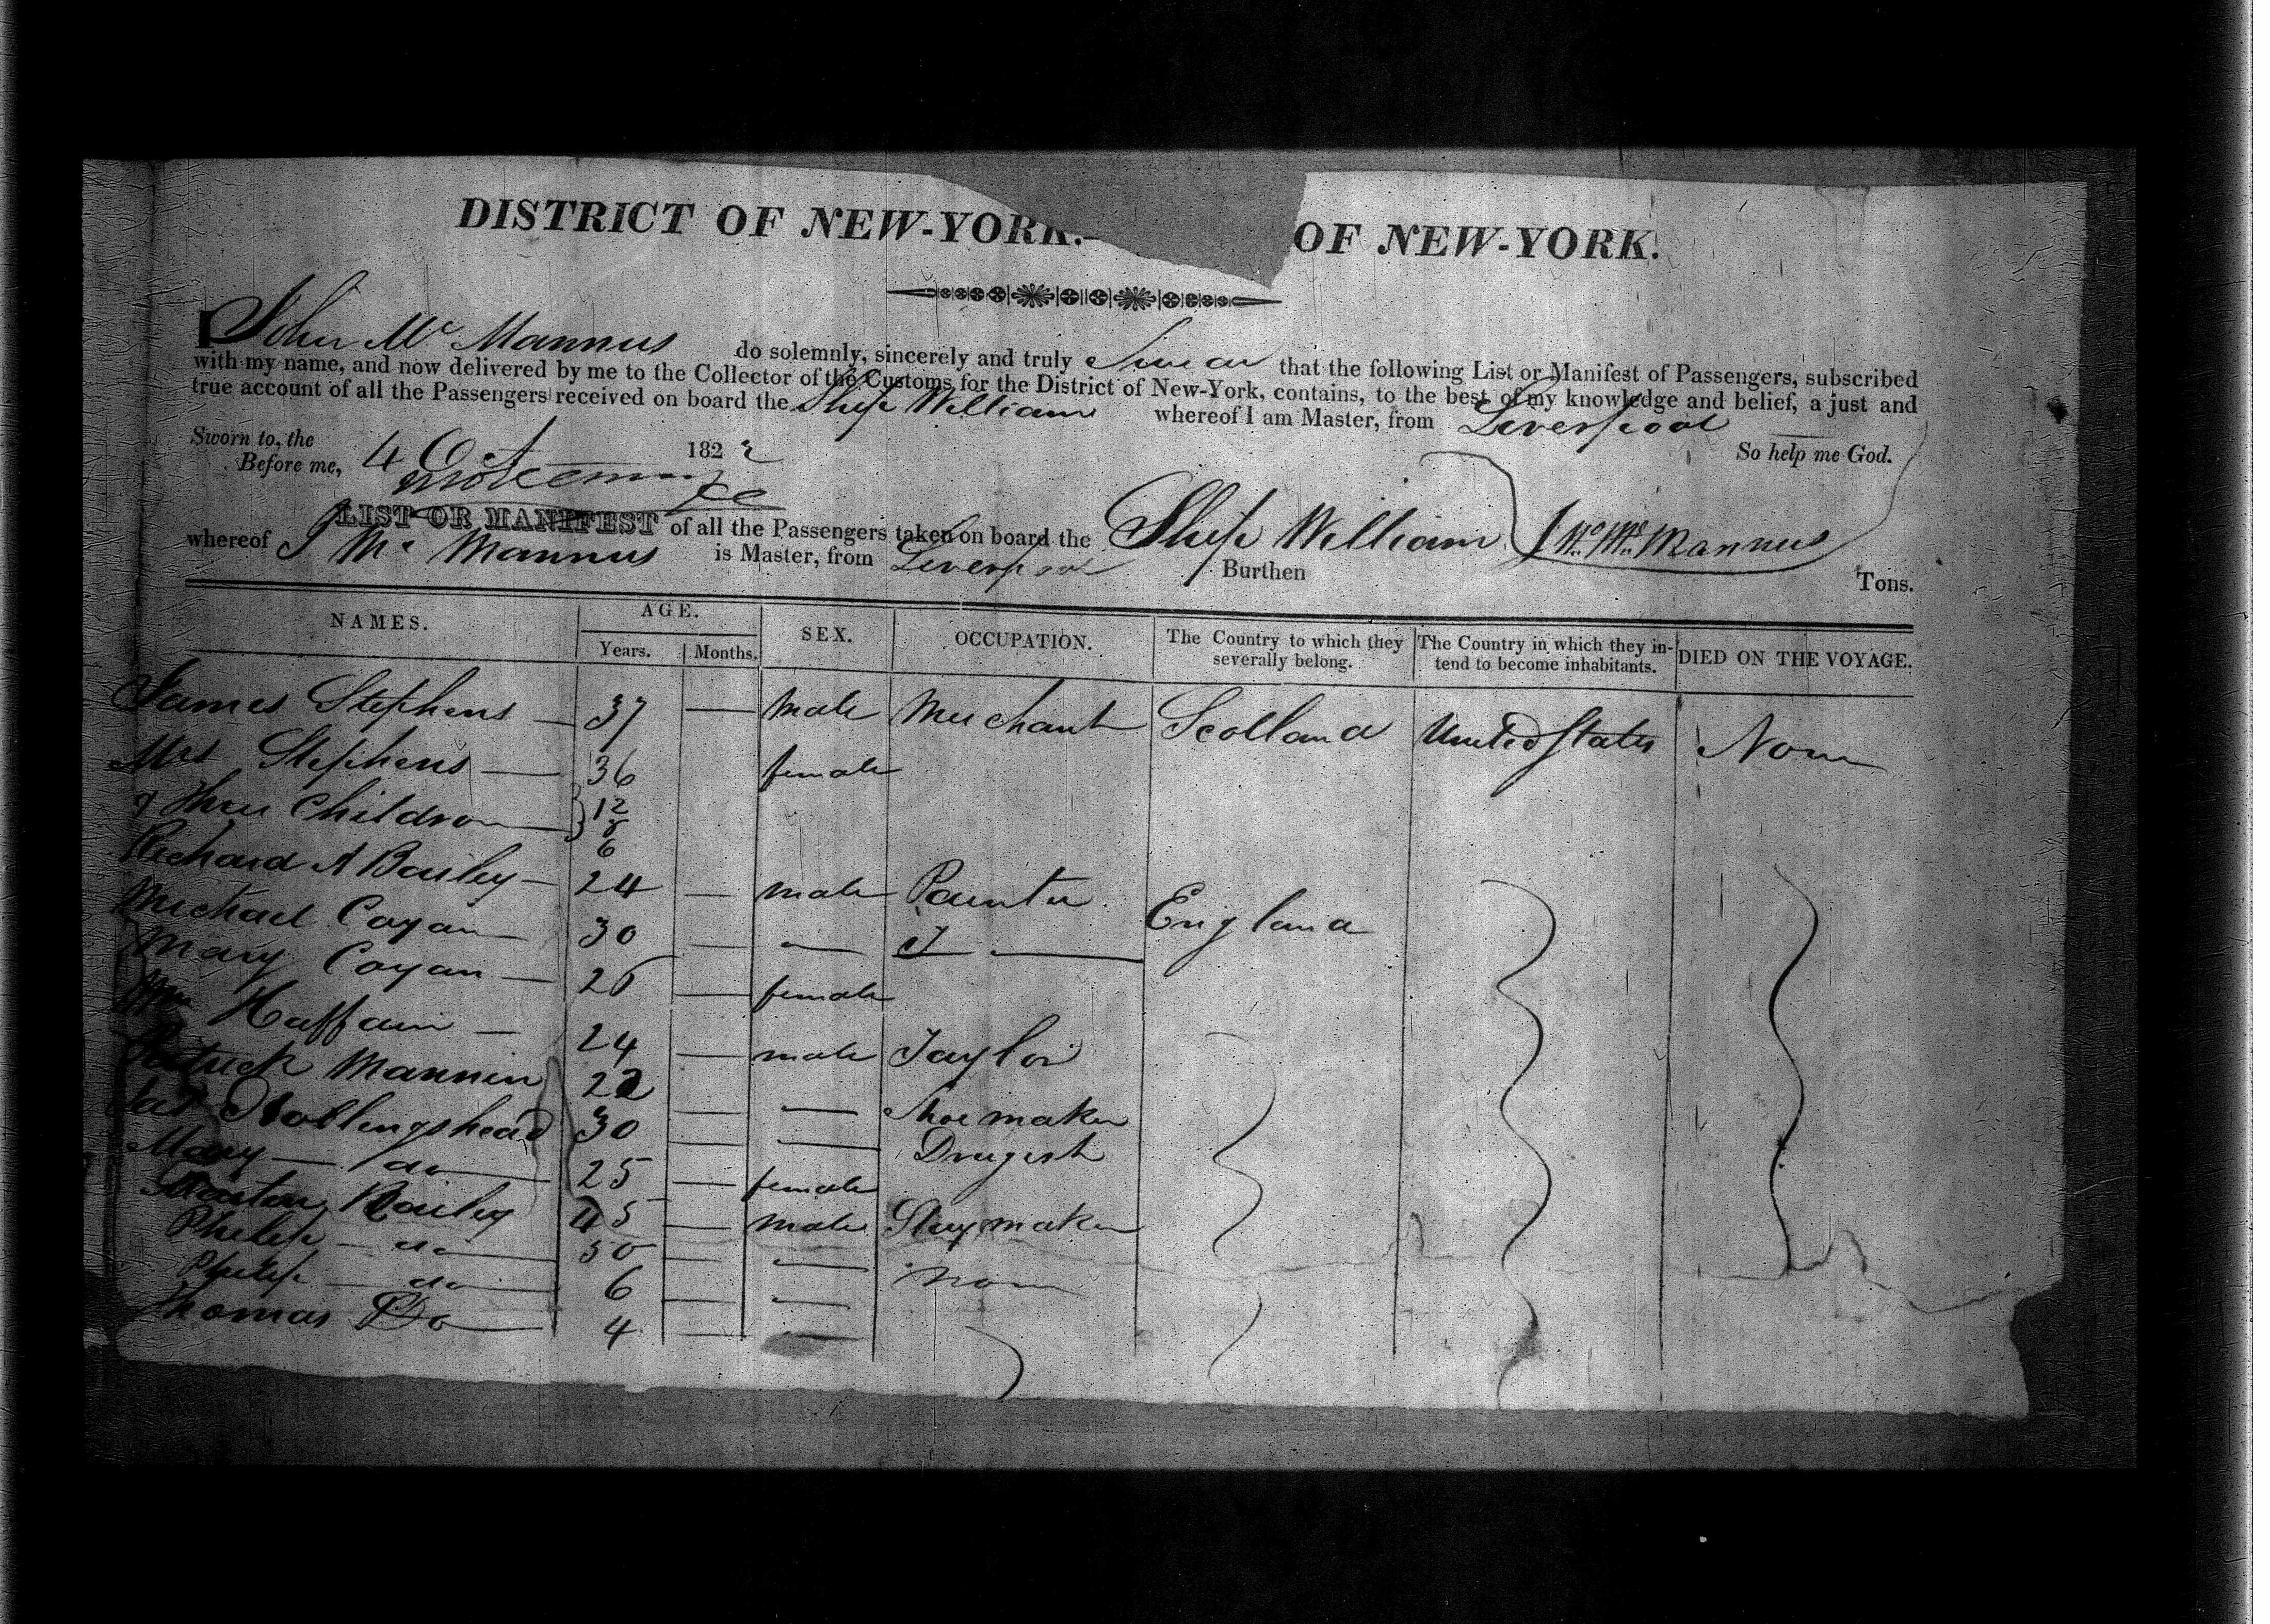 DISTRICT OF NEW-YORK. OF NEW-YORK.
I John Mc Mannus do solemnly, sincerely and truly Swear that the following List or Manifest of Passengers, subscribed
with my name, and now delivered by me to the Collector of the Customs for the District of New-York, contains, to the best of my knowledge and belief, a just and
true account of all the Passengers received on board the Ship William whereof I am Master, from Liverpool
Sworn to, the 4 Oct 1822 So help me God.
Before me,
LIST OR MANIFEST of all the Passengers taken on board the Ship William Jno Mc Mannus
whereof J Mc Mannus is Master, from Liverpool Burthen Tons.
NAMES. AGE. SEX. OCCUPATION. The Country to which they severally belong. The Country in which they intend to become inhabitants. DIED ON THE VOYAGE.
Years. Months.
James Stephens 37 — male Merchant Scotland United States None
Mrs Stephens 36 female
& three Children 12
8
6
Richard A Bailey 24 — male Painter England
Michael Coyan 30 — —
Mary Coyan 25 — female
Wm Haffain 24 — male Taylor
Patrick Mannin 22 — — Shoe maker
Jas Hollingshead 30 — — Drugist
Mary — do 25 — female
Bailey 45 — male Slaymaker
Philip — do 50 — —
Philip — do 6 — — none
Thomas Do 4 — —